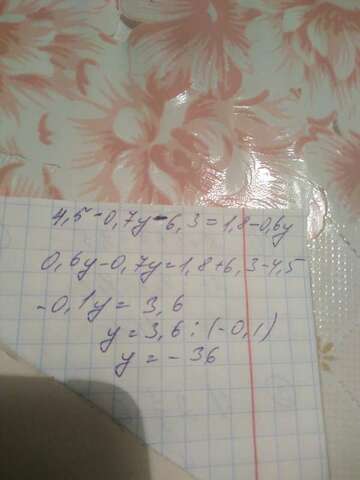 4,5-0,7y-6,3=1,8-0,6y
0,6y-0,7y=1,8+6,3-4,5
-0,1y= 3,6
y=3,6:(-0,1)
y=-36